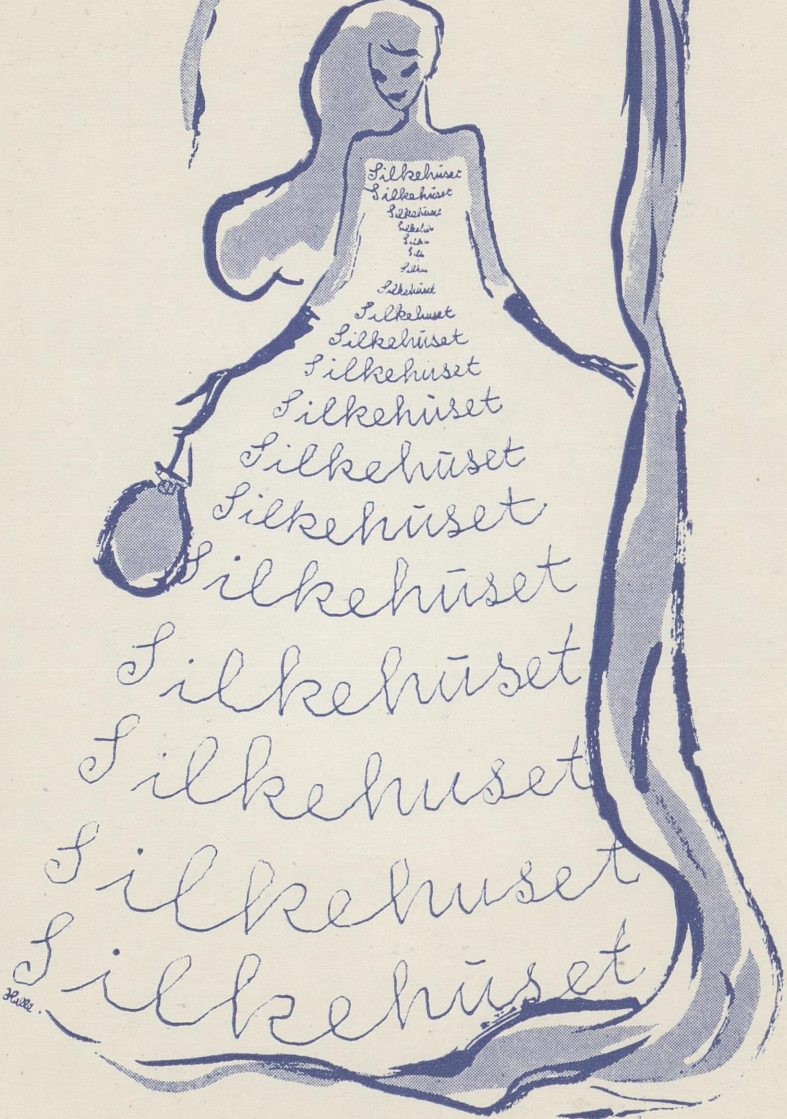 Silkehuset
Silkehuset
Silkehuset
Silkehus
Silke
Silk
Silke
Silkehuset
Silkehuset
Silkehuset
Silkehuset
Silkehuset
Silkehuset
Silkehuset
Silkehuset
Silkehuset
Silkehuset
Silkehuset
Silkehuset